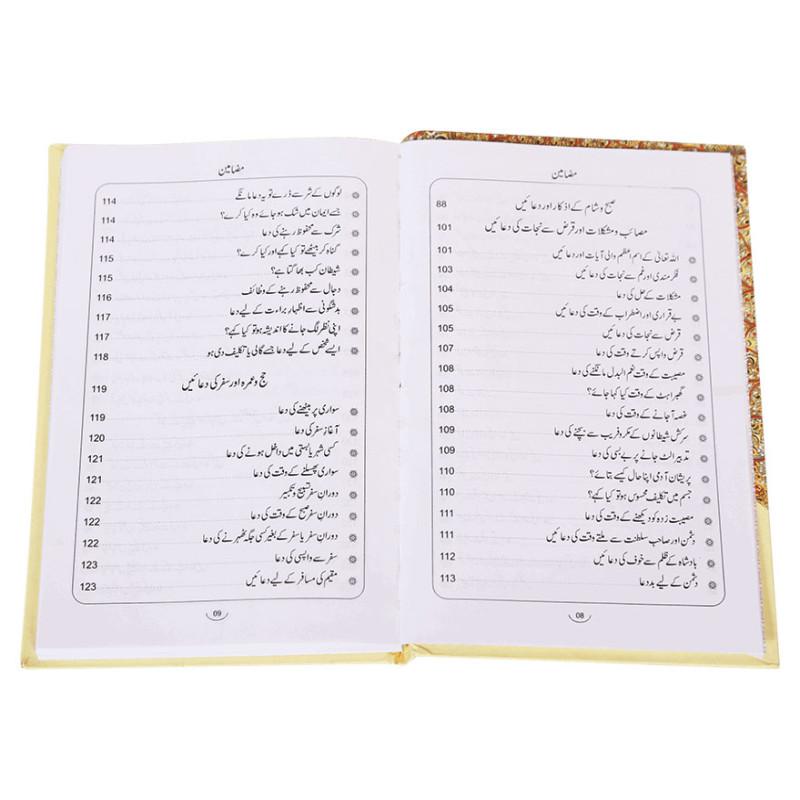 مضامین
صبح و شام کے اذکار اور دعائیں 88
مصائب و مشکلات اور قرض سے نجات کی دعائیں 101
اللہ تعالیٰ کے اسم اعظم والی آیات اور دعائیں 101
فکر مندی اور غم سے نجات کی دعائیں 103
مشکلات کے حل کی دعا 104
بے قراری اور اضطراب کے وقت کی دعائیں 105
قرض سے نجات کی دعائیں 105
قرض واپس کرتے وقت کی دعا 107
مصیبت کے وقت نعم البدل مانگنے کی دعا 108
گھبراہٹ کے وقت کیا کہا جائے؟ 108
غصہ آجانے کے وقت کی دعا 108
سرکش شیطانوں کے مکر و فریب سے بچنے کی دعا 109
تدبیر الٹ جانے پر بے بسی کی دعا 109
پریشان آدمی اپنا حال کیسے بتائے؟ 110
جسم میں تکلیف محسوس ہو تو کیا کہے؟ 110
مصیبت زدہ کو دیکھنے کے وقت کی دعا 111
دشمن اور صاحب سلطنت سے ملتے وقت کی دعائیں 111
بادشاہ کے ظلم سے خوف کی دعائیں 112
دشمن کے لیے بددعا 113
08
مضامین
لوگوں کے شر سے ڈرے تو یہ دعا مانگے 114
جسے ایمان میں شک ہو جائے وہ کیا کرے؟ 114
شرک سے محفوظ رہنے کی دعا 114
گناہ کر بیٹھے تو کیا کہے اور کیا کرے؟ 115
شیطان کب بھاگتا ہے؟ 115
دجال سے محفوظ رہنے کے وظائف 116
بدشگونی سے اظہار براءت کے لیے دعا 117
اپنی نظر لگ جانے کا اندیشہ ہو تو کیا کہے؟ 117
ایسے شخص کے لیے دعا جسے گالی یا تکلیف دی ہو 118
حج و عمرہ اور سفر کی دعائیں 119
سواری پر بیٹھنے کی دعا 119
آغاز سفر کی دعا 120
کسی شہر یا بستی میں داخل ہونے کی دعا 121
سواری پھسلنے کے وقت کی دعا 121
دوران سفر تسبیح و تکبیر 122
دوران سفر صبح کے وقت کی دعا 122
دوران سفر یا سفر کے بغیر کسی جگہ ٹھہرنے کی دعا 122
سفر سے واپسی کی دعا 123
مقیم کی مسافر کے لیے دعائیں 123
09